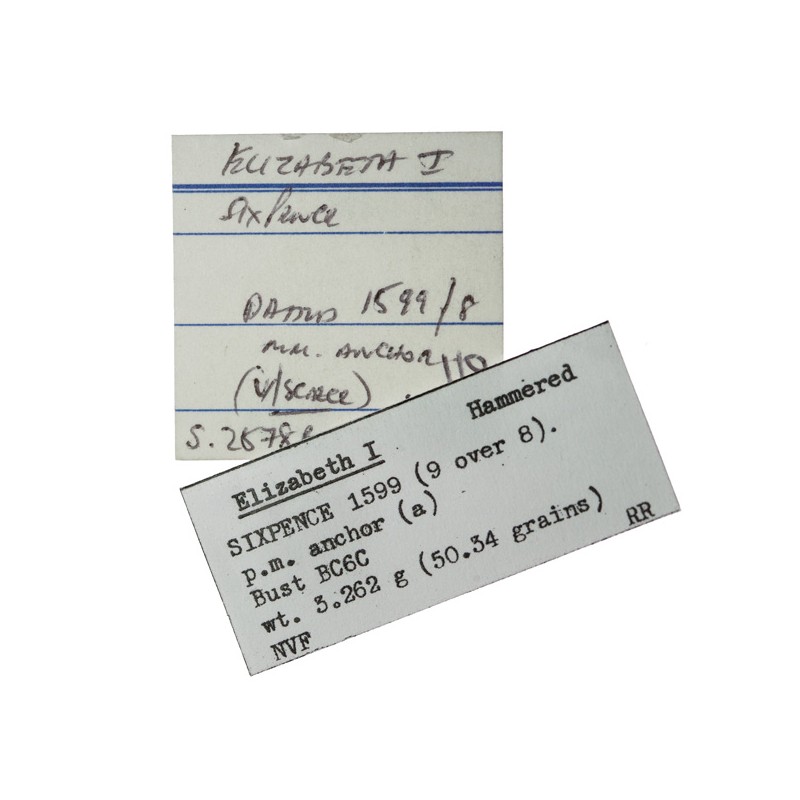 ELIZABETH I
Sixpence
DATED 1599/8
M.M. ANCHOR 110
(V/SCARCE)
S. 2578
Elizabeth I Hammered
SIXPENCE 1599 (9 over 8).
p.m. anchor (a)
Bust BC6C
wt. 3.262 g (50.34 grains)
NVF RR